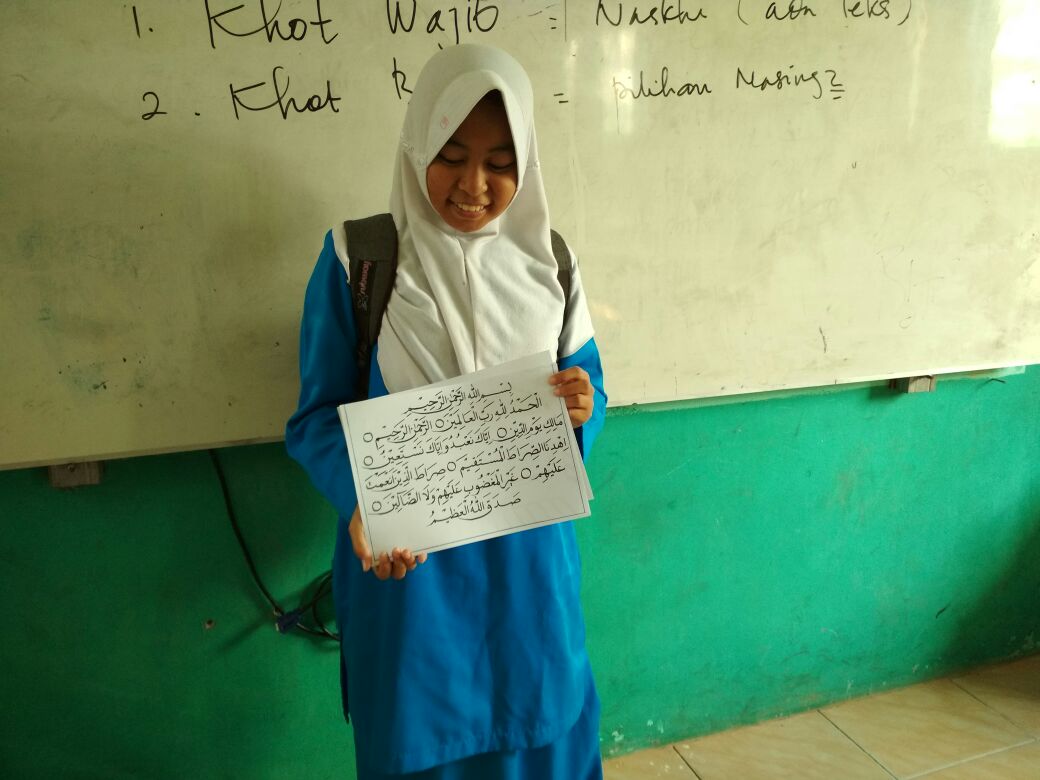 1. Khot Wajib = Naskhi (ada teks)
2. Khot = pilihan Masing2
بِسْمِ اللهِ الرَّحْمٰنِ الرَّحِيْمِ
الْحَمْدُ لِلّٰهِ رَبِّ الْعَالَمِيْنَ ○ الرَّحْمٰنِ الرَّحِيْمِ ○
مَالِكِ يَوْمِ الدِّيْنِ ○ اِيَّاكَ نَعْبُدُ وَاِيَّاكَ نَسْتَعِيْنُ ○
اِهْدِنَا الصِّرَاطَ الْمُسْتَقِيْمَ ○ صِرَاطَ الَّذِيْنَ اَنْعَمْتَ
عَلَيْهِمْ ○ غَيْرِ الْمَغْضُوْبِ عَلَيْهِمْ وَلَا الضَّآلِّيْنَ ○
صَدَقَ اللهُ الْعَظِيْمُ